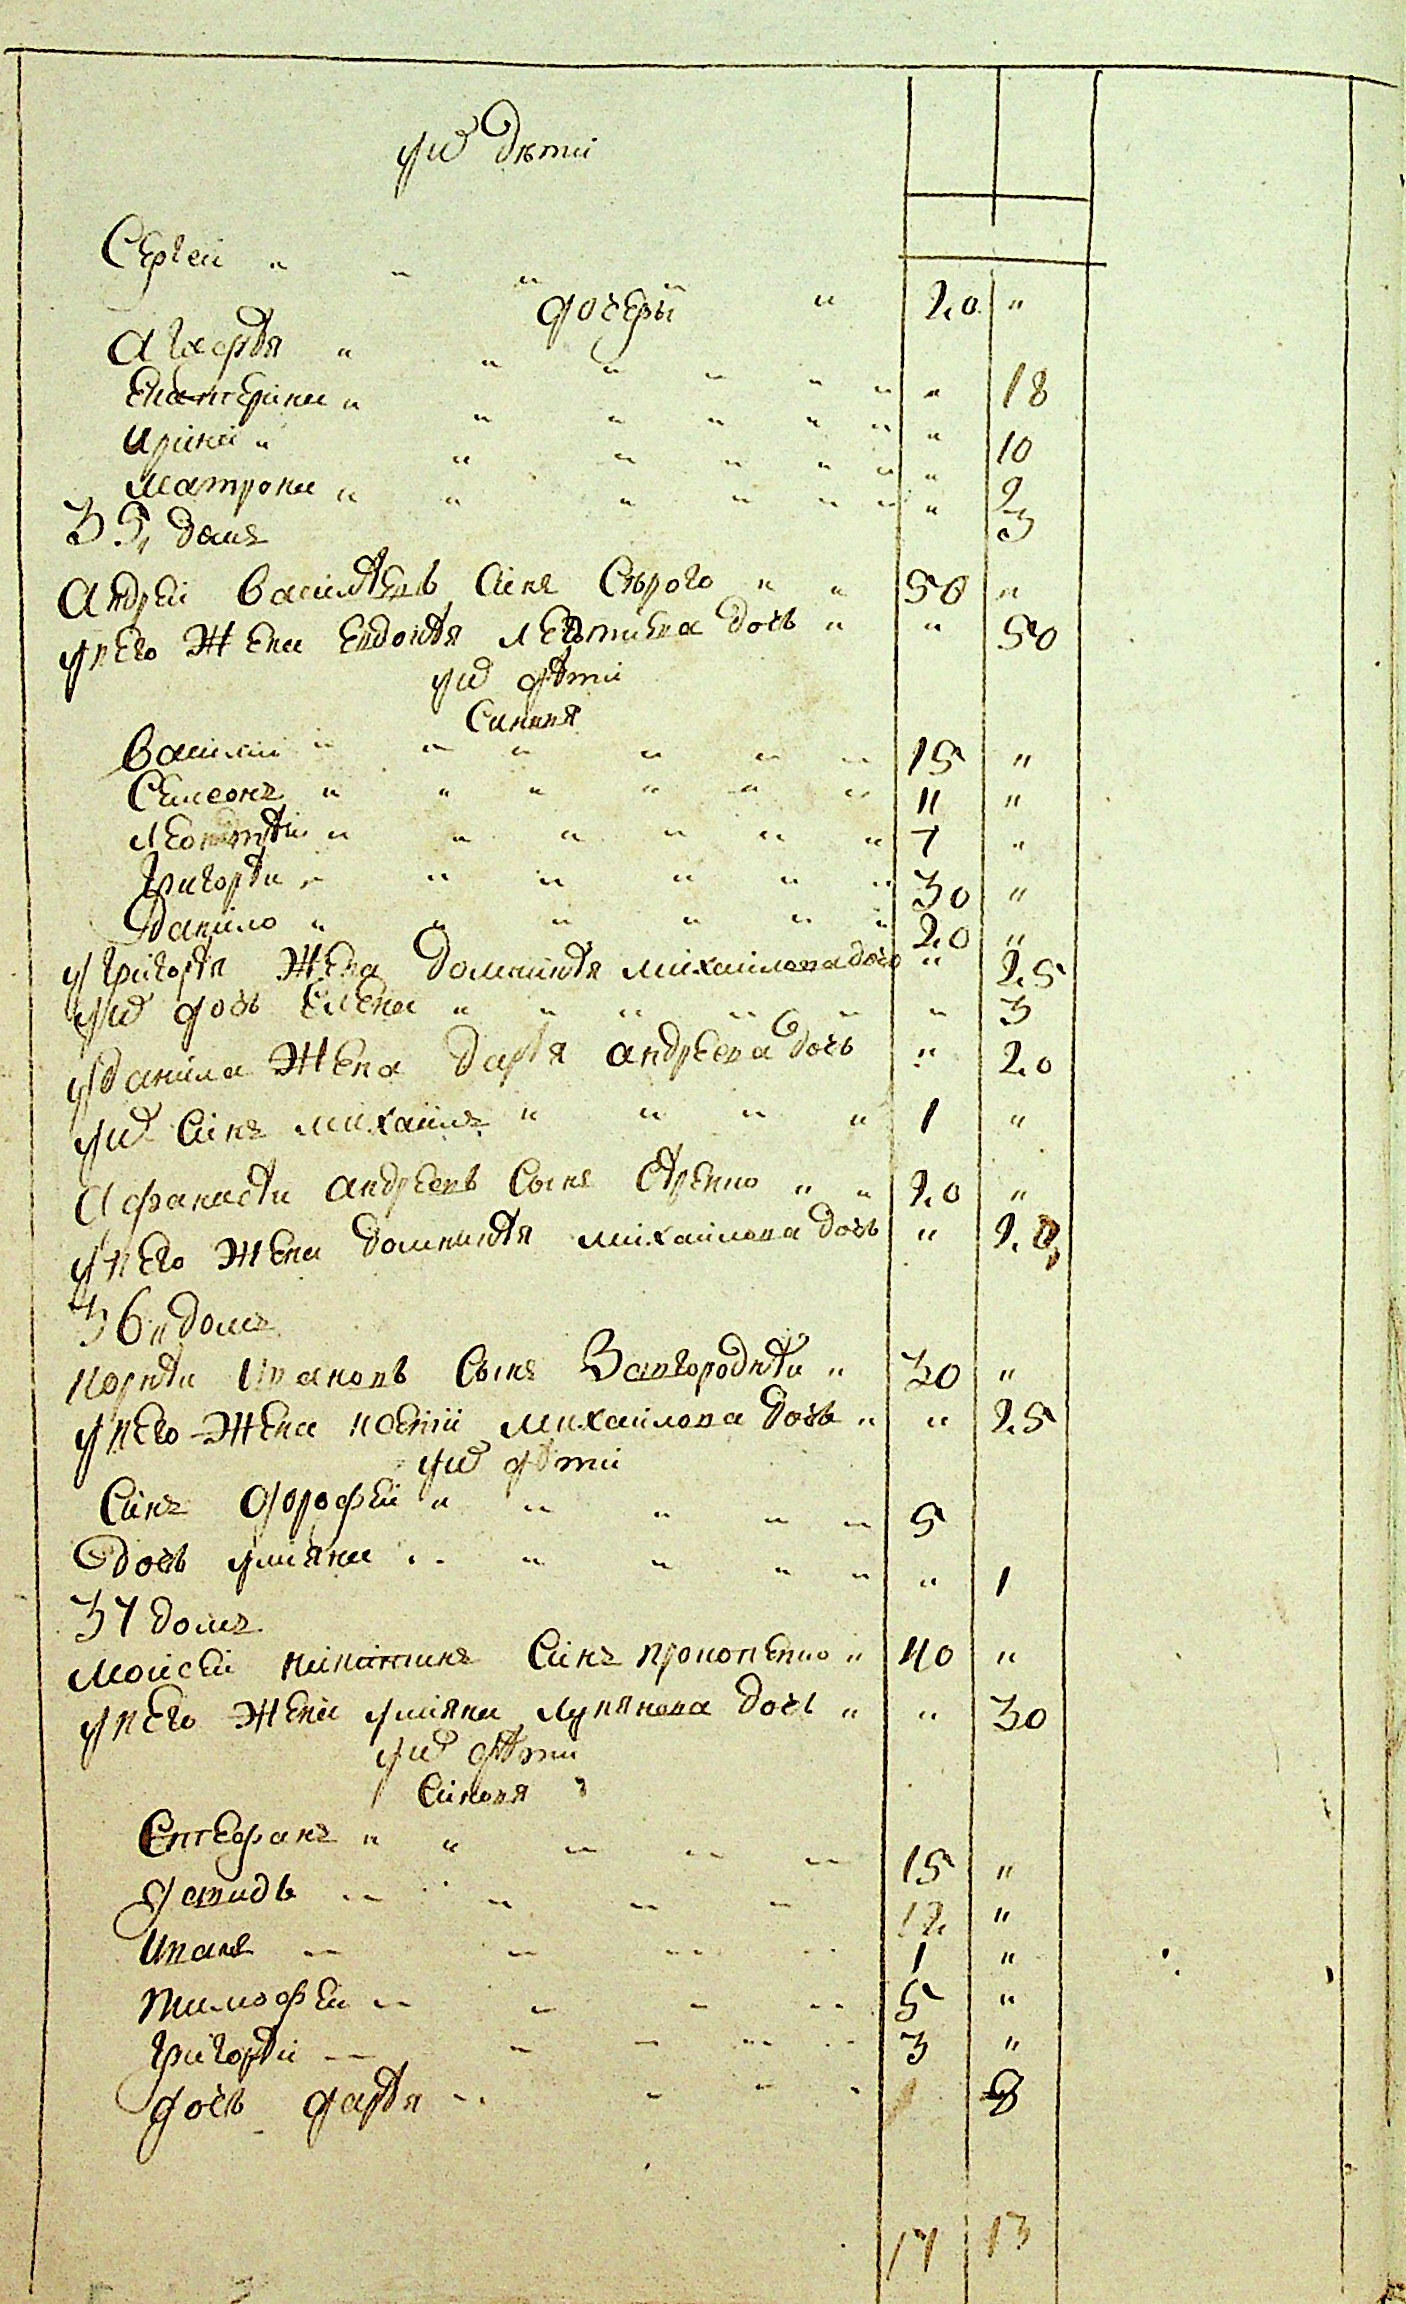 у ихъ дѣти
Сергей " " " " " 20 "
дочеры
Агафія " " " " " " " 18
Екатерина " " " " " " " 10
Ирина " " " " " " " 9
Матрона " " " " " " " 3
35, домъ
Андрей Василіевъ Синъ Сѣрого " " 50 "
у него Жена Евдокія Леонтиева дочь " " 50
у ихъ дѣти
Синовя
Василій " " " " " " 15 "
Симеонъ " " " " " " 11 "
Леонтій " " " " " " 7 "
Григорій " " " " " " 30 "
Данило " " " " " " 20 "
у Григорія Жена Домникія Михайлова дочь " 25
у ихъ дочь Елена " " " " " " 3
у Данила Жена Дарія Андреева дочь " 20
у ихъ Синъ Михаилъ " " " " 1 "
Афанасій Андреевъ Сынъ " " 20 "
у него Жена Домникія Михайлова дочь " 20
36 " домъ
Корній Ивановъ Сынъ Завгородній " 30 "
у него Жена Михайлова дочь " " 25
у ихъ дѣти
Синъ Дорофей " " " " " 5
Дочь Уліяна " " " " " " 1
37 домъ
Моисей Никитинъ Синъ Прокопенко " 40 "
у него Жена Уліяна Лукянова дочь " " 30
у ихъ дѣти
Синовя
Стефанъ " " " " " 15 "
Давидъ " " " " 12 "
Иванъ " " " " 1 "
Тимофей " " " " 5 "
Григорій " " " " " 3 "
дочь Дарія " " " " 8
17 13